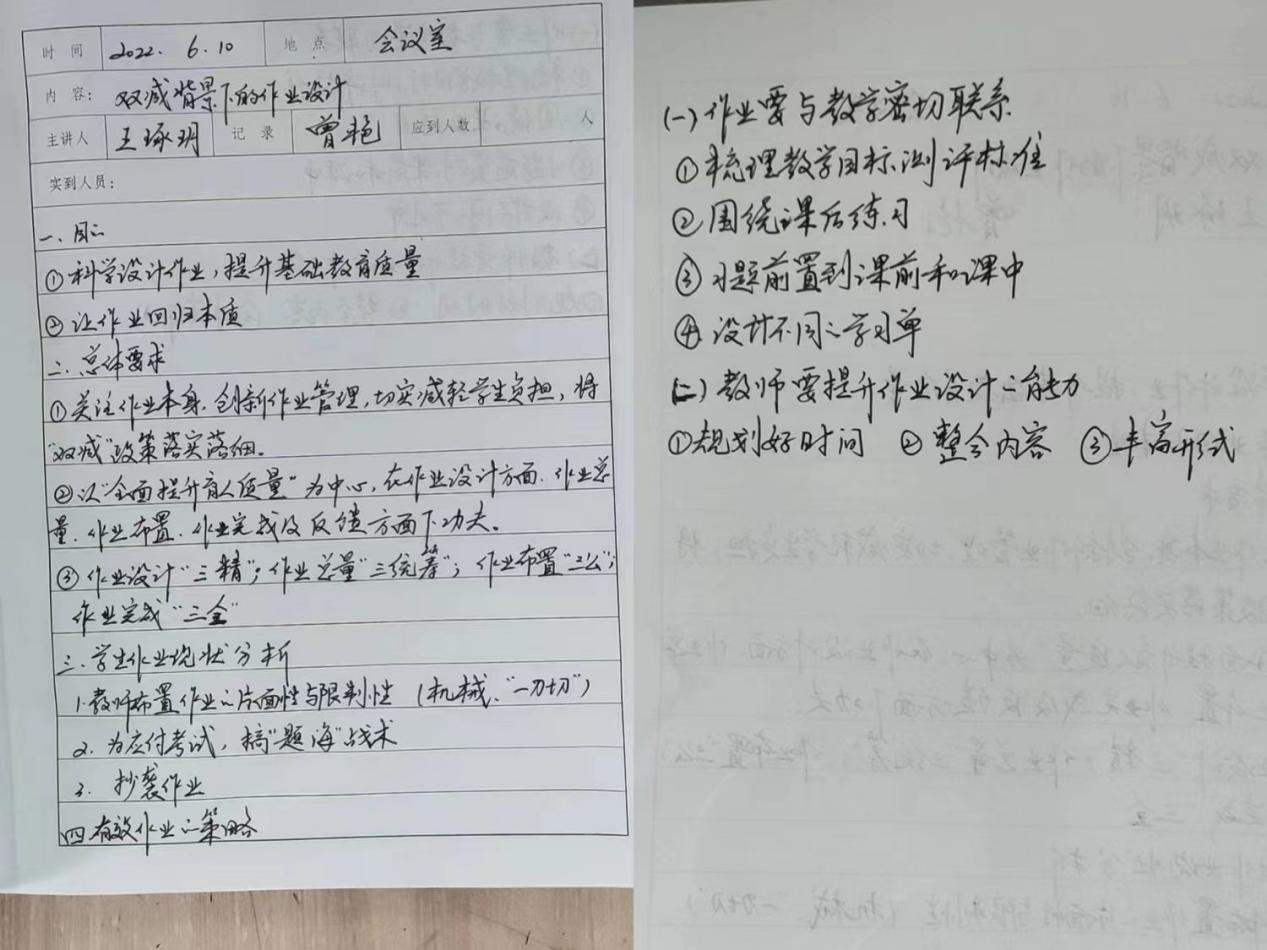 时 间 2022. 6.10 地 点 会议室
内 容: 双减背景下的作业设计
主讲人 王琢玥 记 录 曾艳 应到人数 人
实到人员:
一、目的
①科学设计作业,提升基础教育质量
②让作业回归本质
二、总体要求
①关注作业本身,创新作业管理,切实减轻学生负担,将
“双减”政策落实落细。
②以“全面提升育人质量”为中心,在作业设计方面、作业总
量、作业布置、作业完成及反馈方面下功夫。
③作业设计“三精”;作业总量“三统筹”;作业布置“三公”;
作业完成“三全”
三、学生作业现状分析
1.教师布置作业的片面性与限制性(机械、“一刀切”)
2.为应付考试,搞“题海”战术
3.抄袭作业
四.有效作业的策略
(一)作业要与教学密切联系
①梳理教学目标测评标准
②围绕课后练习
③习题前置到课前和课中
④设计不同的学习单
(二)教师要提升作业设计的能力
①规划好时间 ②整合内容 ③丰富形式